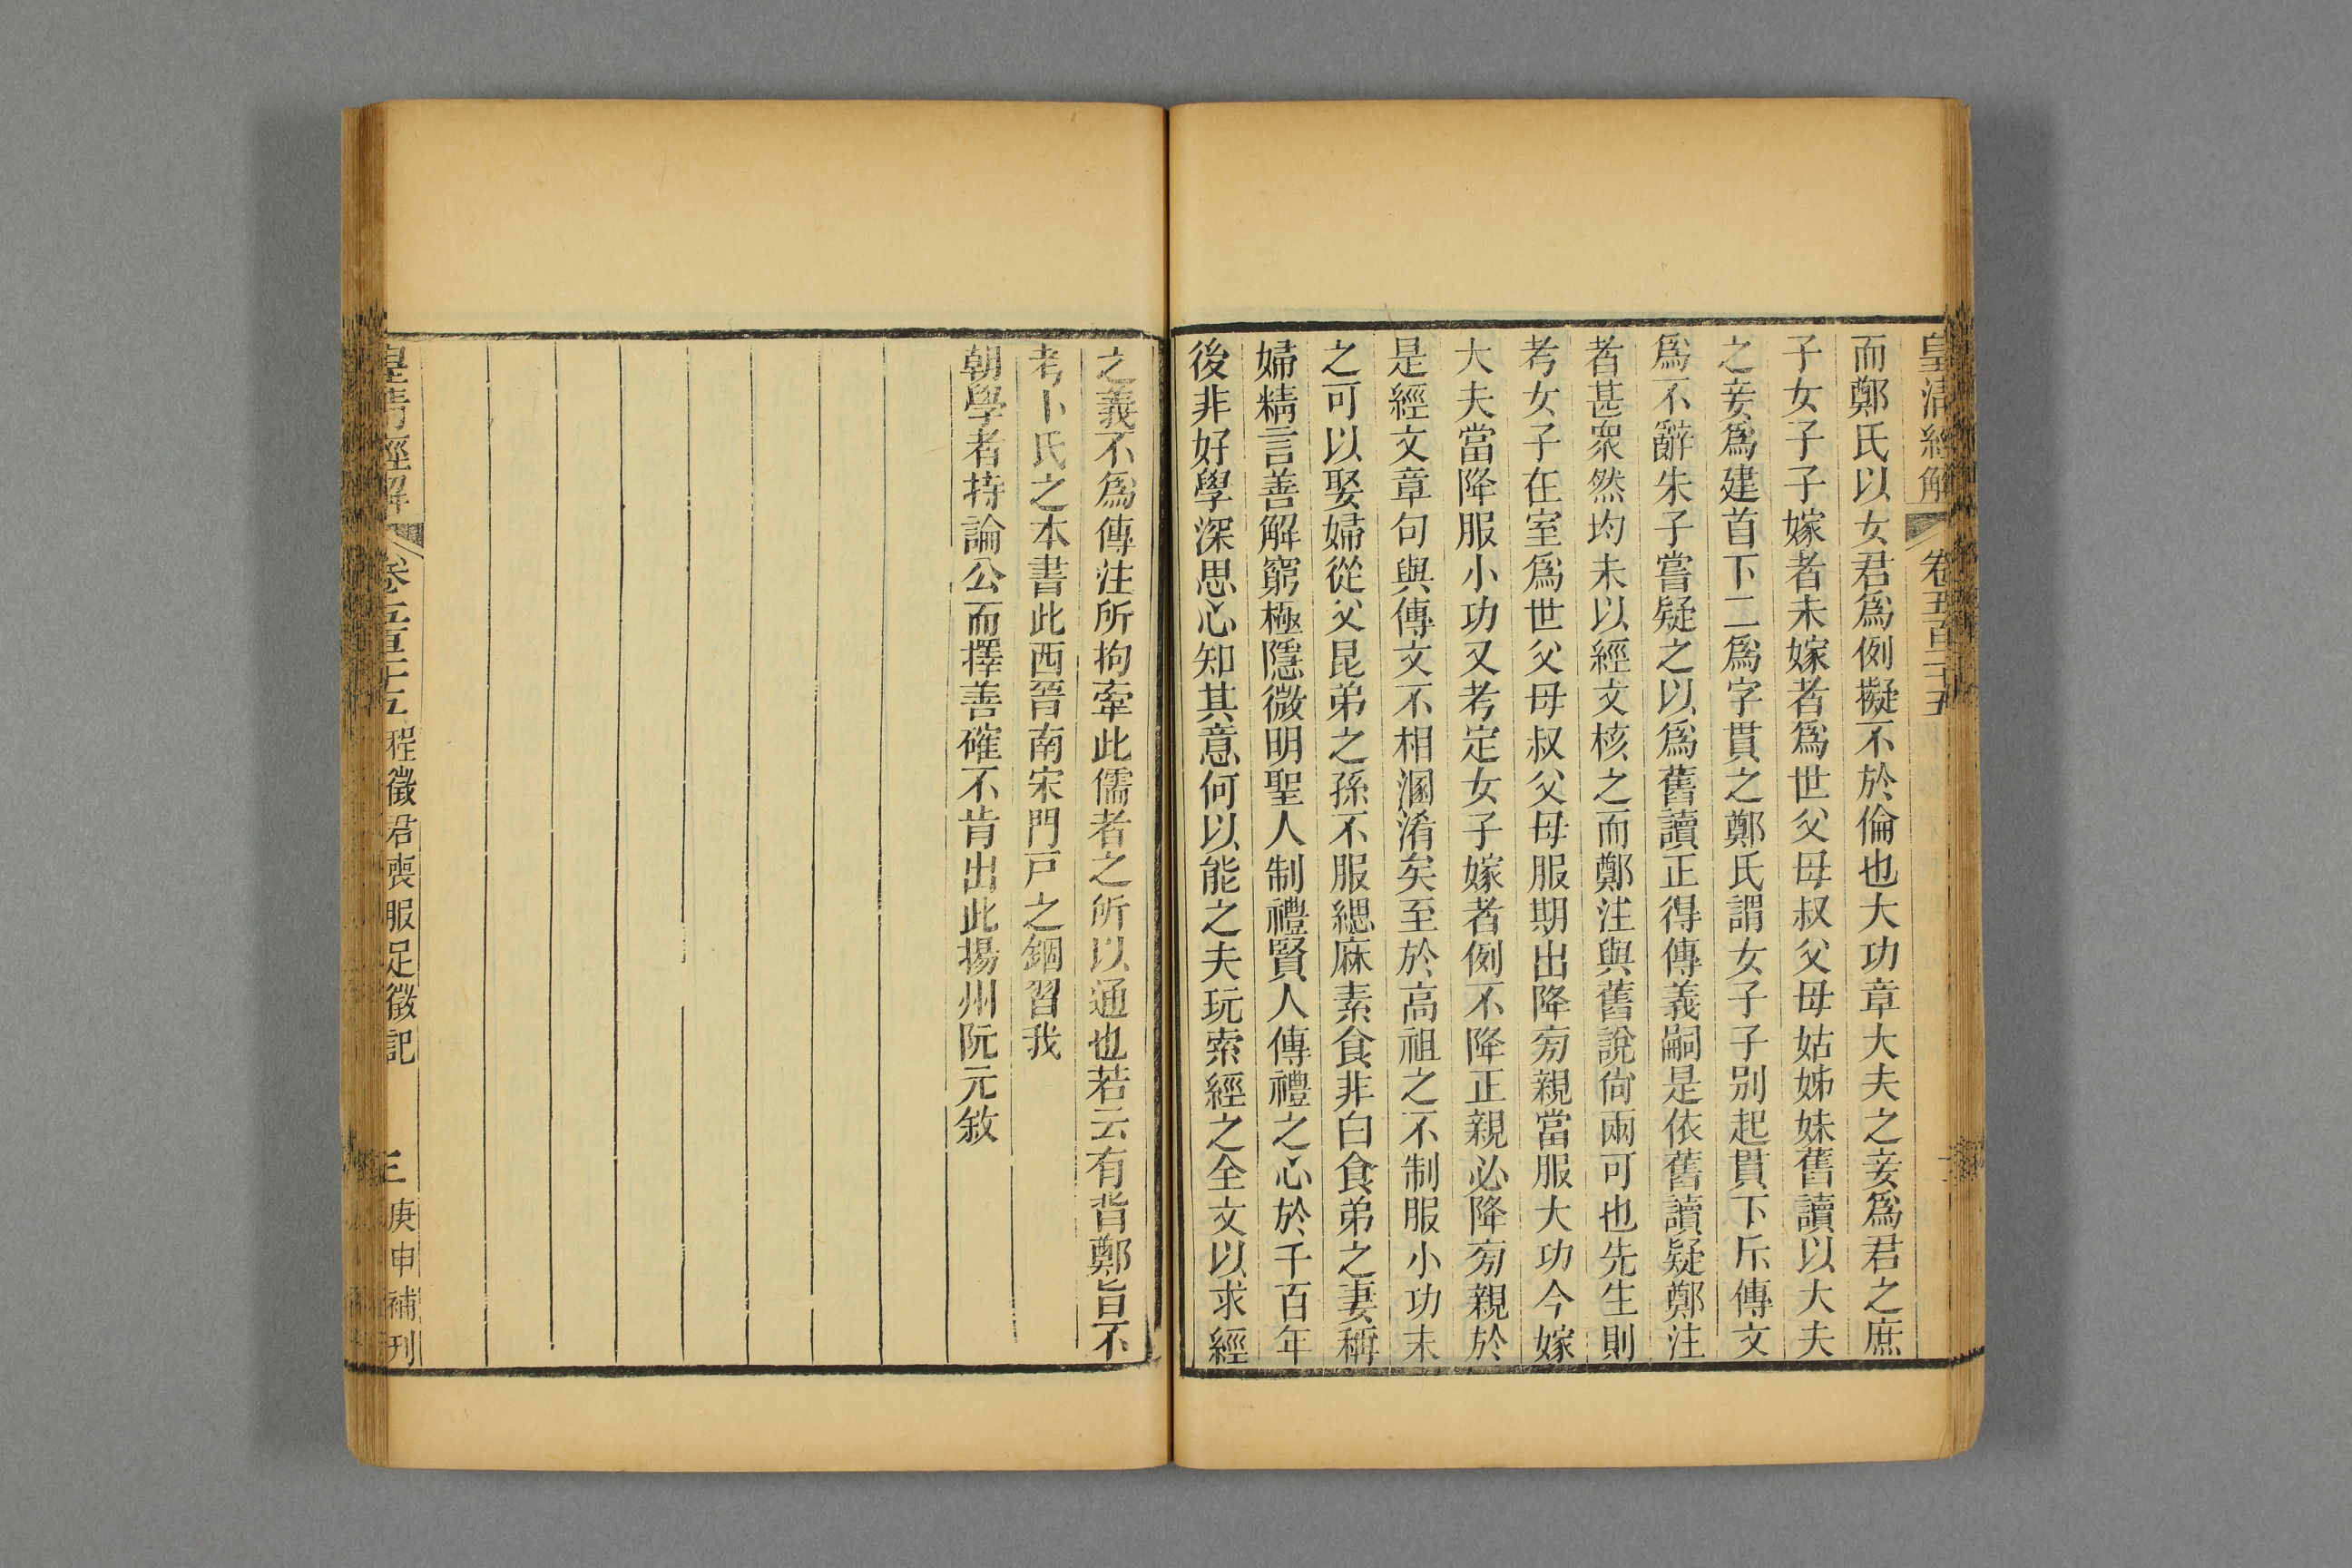 皇清經解 卷五百二十五
而鄭氏以女君爲例擬不於倫也大功章大夫之妾爲君之庶
子女子子嫁者未嫁者爲世父母叔父母姑姊妹舊讀以大夫
之妾爲建首下二爲字貫之鄭氏謂女子子別起貫下斥傳文
爲不辭朱子嘗疑之以爲舊讀正得傳義嗣是依舊讀疑鄭注
者甚衆然均未以經文核之而鄭注與舊說尙兩可也先生則
考女子在室爲世父母叔父母服期出降旁親當服大功今嫁
大夫當降服小功又考定女子嫁者例不降正親必降旁親於
是經文章句與傳文不相溷淆矣至於高祖之不制服小功末
之可以娶婦從父昆弟之孫不服緦麻素食非白食弟之妻稱
婦精言善解窮極隱微明聖人制禮賢人傳禮之心於千百年
後非好學深思心知其意何以能之夫玩索經之全文以求經
之義不爲傳注所拘牽此儒者之所以通也若云有背鄭旨不
考卜氏之本書此西晉南宋門戸之錮習我
朝學者持論公而擇善確不肯出此揚州阮元敘
皇清經解 卷五百二十五 程徵君喪服足徵記 三 庚申補刊